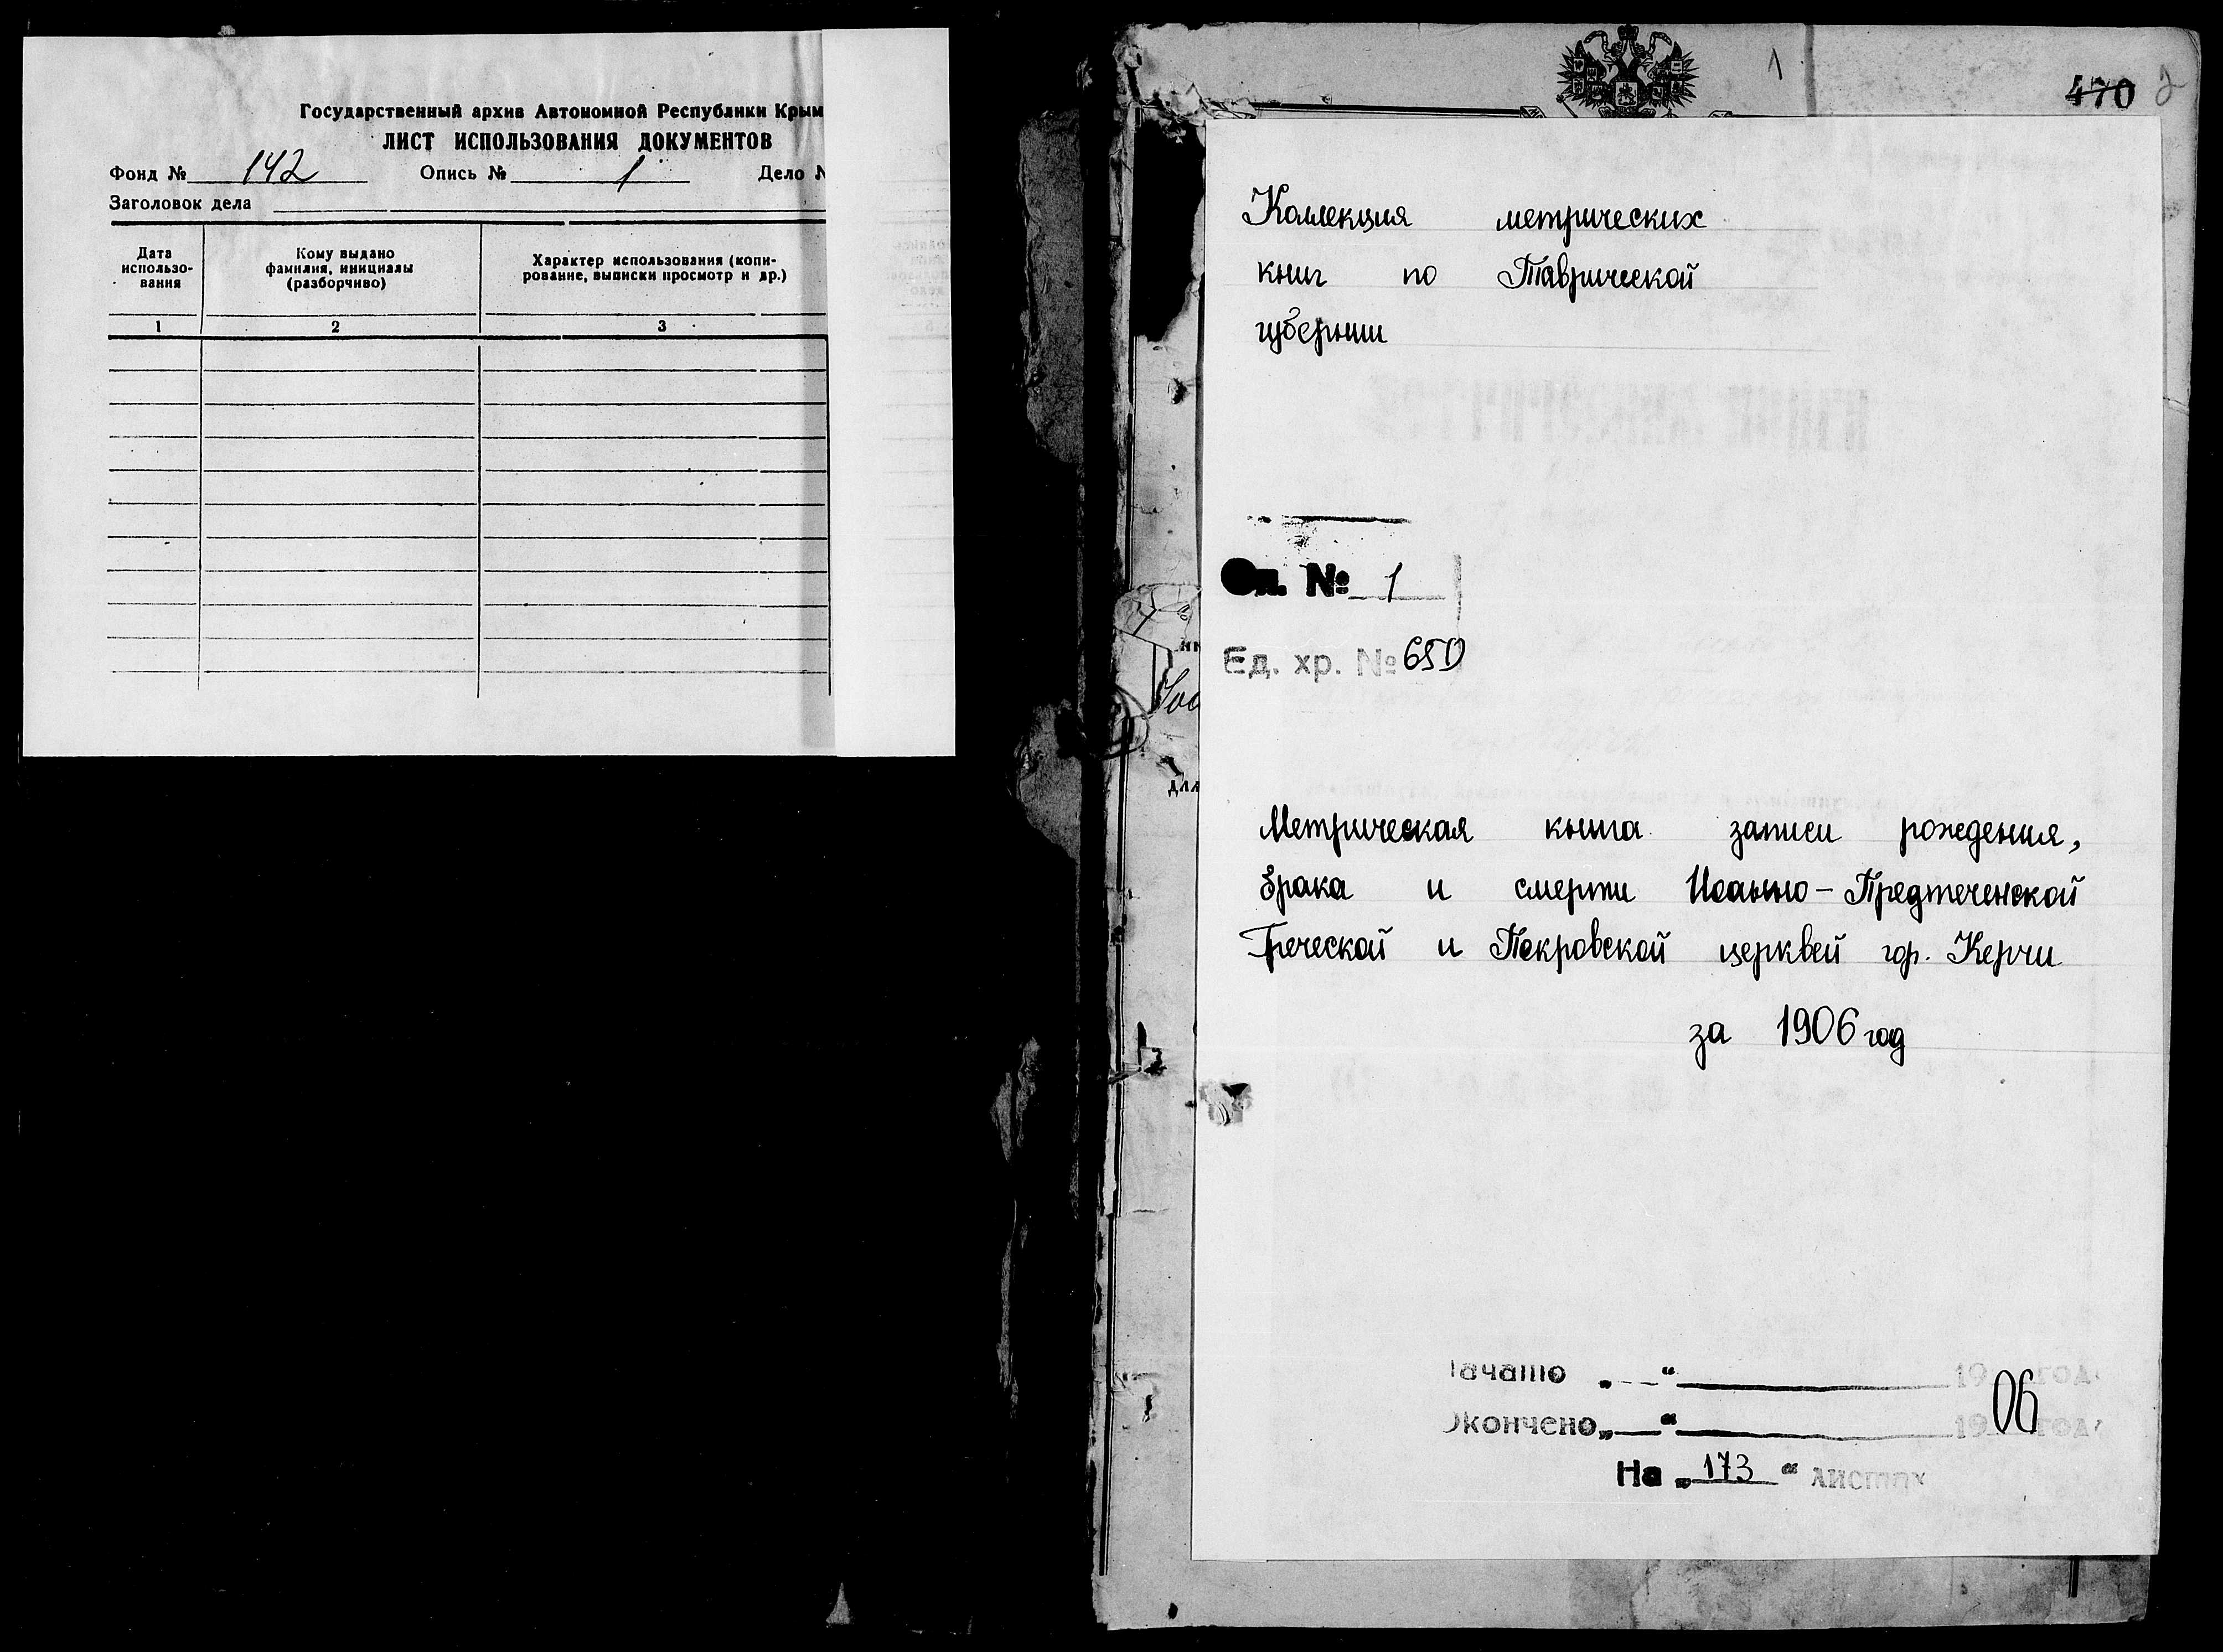 Государственный архив Автономной Республики Крым
ЛИСТ ИСПОЛЬЗОВАНИЯ ДОКУМЕНТОВ
Фонд № 142 Опись № 1 Дело №
Заголовок дела
Дата использо-вания
Кому выдано фамилия, инициалы (разборчиво)
Характер использования (копи-рование, выписки просмотр и др.)
1 2 3
1
470 2
Коллекция метрических
книг по Таврической
губернии
Оп. № 1
Ед. хр. № 650
Метрическая книга записи рождения,
брака и смерти Иоанно-Предтеченской
Греческой и Покровской церквей гор. Керчи
за 1906 год
Начато „ — “ 19 год
Окончено „ — “ 1906 год
На „ 173 “ листах